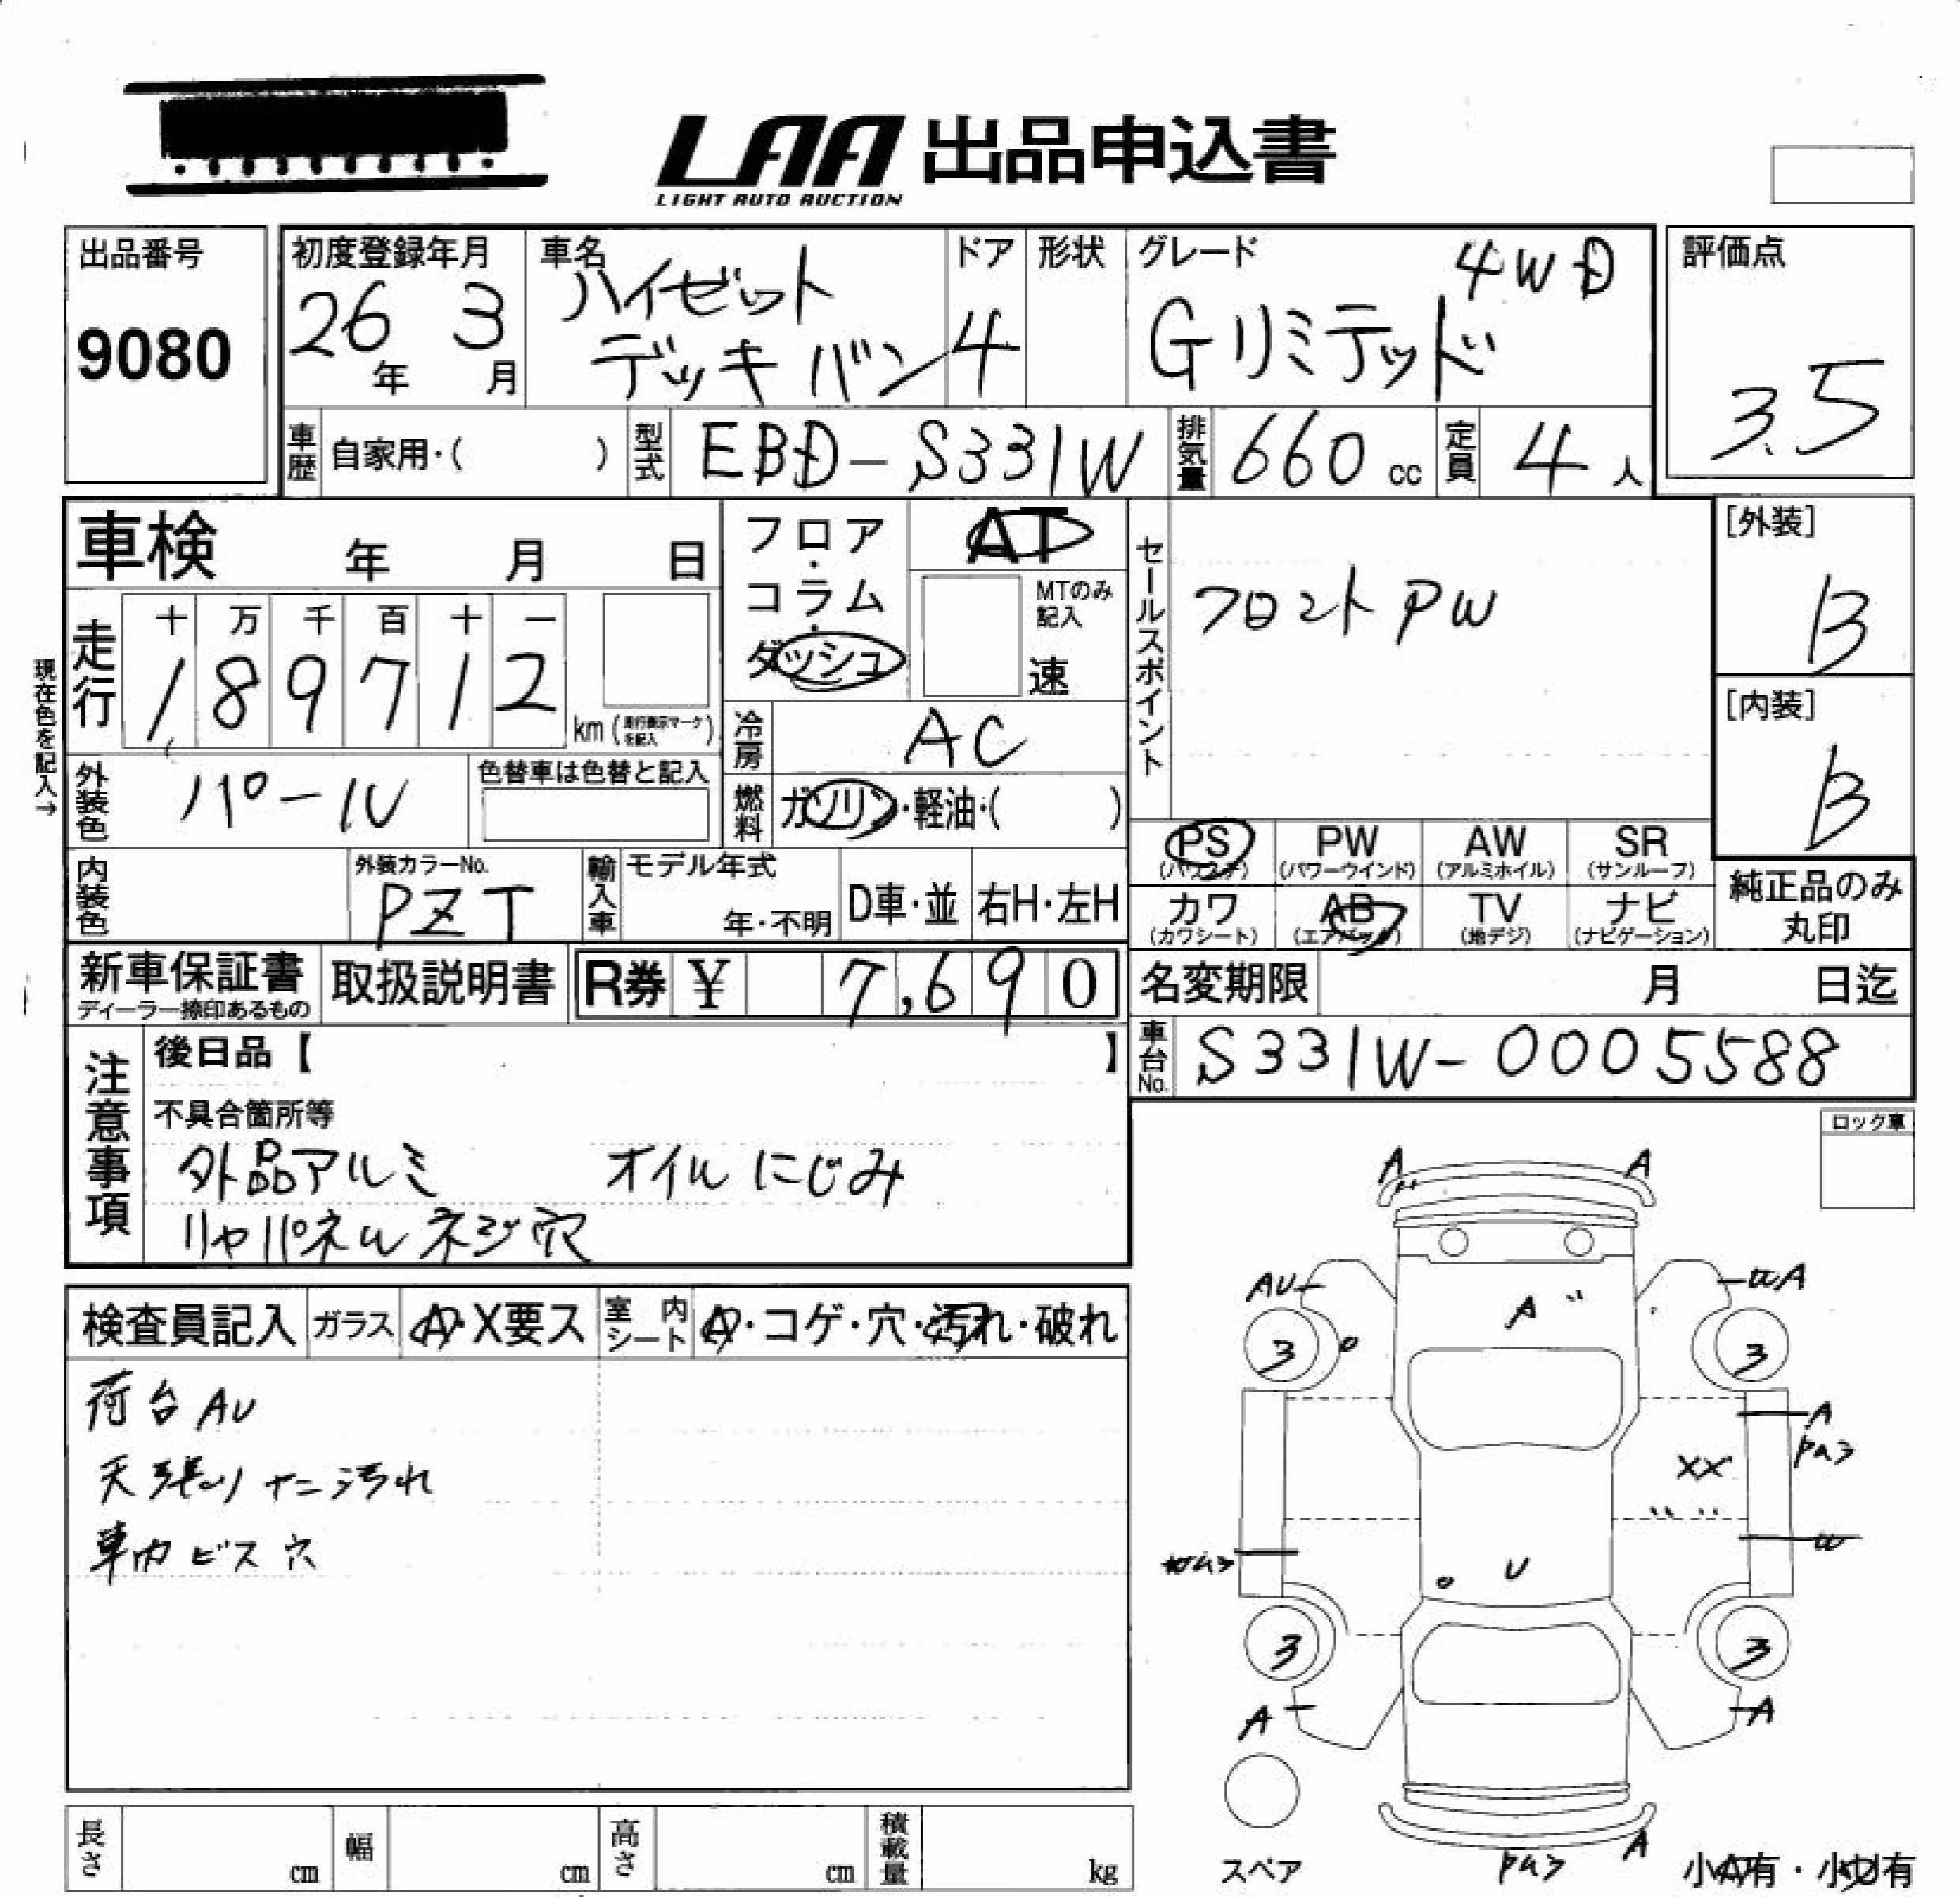 LAA 出品申込書
LIGHT AUTO AUCTION
出品番号
9080
初度登録年月
26年 3月
車名
ハイゼット
デッキバン
ドア
4
形状
グレード
4WD
Gリミテッド
評価点
3.5
車歴 自家用・( )
型式 EBD-S331W
排気量 660 cc
定員 4 人
車検 年 月 日
フロア・コラム・ダッシュ
AT
MTのみ記入
速
セールスポイント
フロントPW
[外装]
B
[内装]
B
現在色を記入→
走行
十 万 千 百 十 一
1 8 9 7 1 2
km (走行表示マークを記入)
冷房 AC
外装色 パール
色替車は色替と記入
燃料 ガソリン・軽油・( )
PS PW AW SR
(パワステ) (パワーウインド) (アルミホイル) (サンルーフ)
カワ AB TV ナビ
(カワシート) (エアバック) (地デジ) (ナビゲーション)
純正品のみ
丸印
内装色
外装カラーNo.
PZT
輸入車
モデル年式
年・不明
D車・並
右H・左H
新車保証書
ディーラー捺印あるもの
取扱説明書
R券 ¥ 7,690
名変期限 月 日迄
車台No. S331W-0005588
注意事項
後日品【 】
不具合箇所等
外品アルミ オイルにじみ
リヤパネルネジ穴
ロック車
検査員記入 ガラス A・X要ス
室内シート A・コゲ・穴・汚れ・破れ
荷台AU
天張りナニ汚れ
車内ビス穴
A A
AU
A
3 3
A
XX
U
3 3
A A
A
スペア
小A有・小U有
長さ cm
幅 cm
高さ cm
積載量 kg